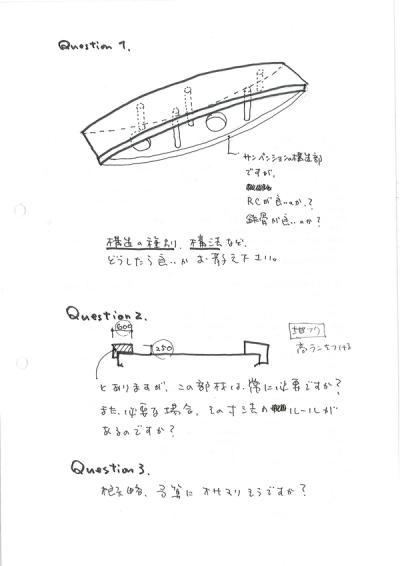 Question 1.
サスペンションの構造部
ですが、
RCが良いのか?
鉄骨が良いのか?
構造の種別、構法など、
どうしたら良いか お教え下さい。
Question 2.
600
250
地フク
高ランをつける
とありますが、この部材は、常に必要ですか?
また、必要な場合、その寸法のルールが
あるのですか?
Question 3.
概略、予算に オサマリそうですか?